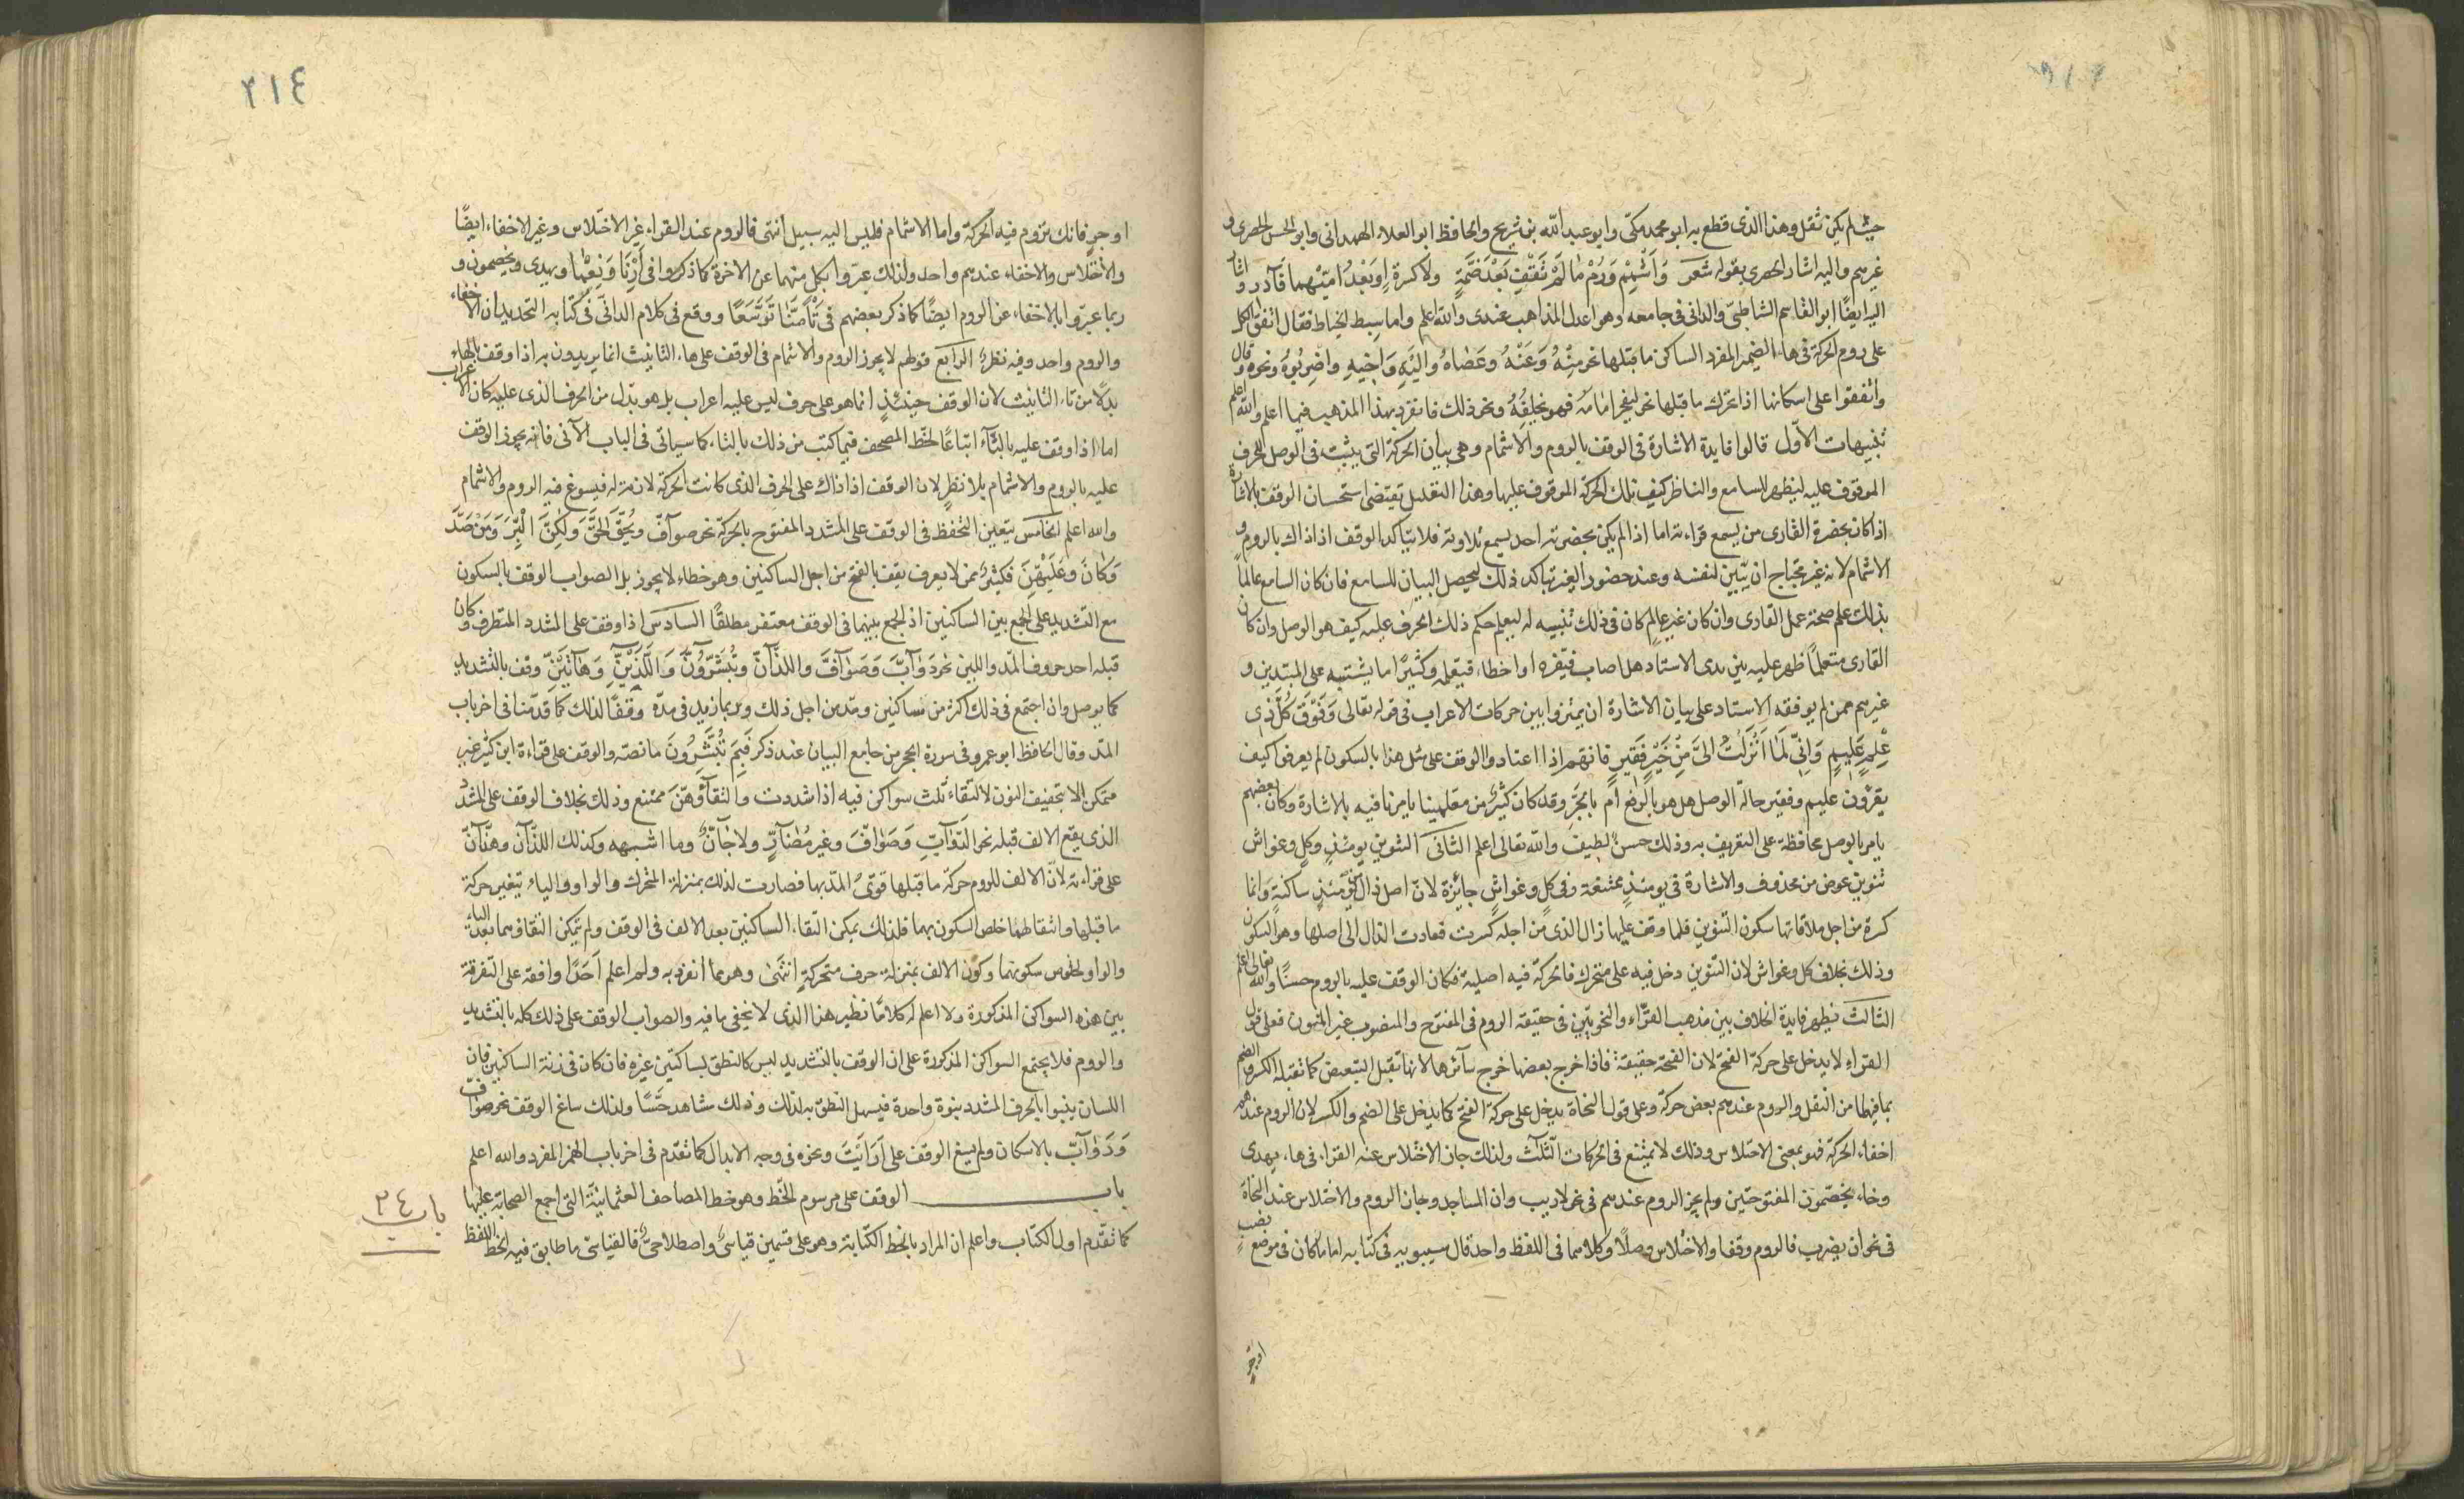 حيث لم يكن ثقل وهذا الذى قطع به ابو محمد مكّى وابو عبد الله بن شريح والحافظ ابو العلاء الهمدانى وابو الحسن الحصرى و
غيرهم واليه اشار الحصرى بقوله شعر وَاَشْمِمْ وَرُمْ مٰا لَمْ تَقِفْ بَعْدَ ضَمَّةٍ ولا كسرةٍ اوبَعْدَ اميّهما فَآدرِ واشار
اليه ايضًا ابو القاسم الشاطبىّ والدانى فى جامعه وهو اعدل المذاهب عندى والله اعلم واما سبط الخياط فقال اتفق الكل
على روم الحركة فى هاء الضمير المفرد الساكن ما قبلها نحو مِنْهُ وَعَنْهُ وعَصٰاهُ واِلَيْهِ وَاَخيهِ واضرِبُوهُ ونحوه قال
واتفقوا على اسكانها اذا تحرك ما قبلها نحو ليفجر امامَه فهو يخلِفُهُ ونحو ذلك فانفرد بهذا المذهب فيما اعلم والله اعلم
تنبيهات الاوّل قالوا فايدة الاشارة فى الوقف بالروم والاشمام وهى بيان الحركة التى يثبت فى الوصل للحرف
الموقوف عليه ليظهر للسامع والناظر كيف تلك الحركة الموقوف عليها وهذا التعليل يقتضى استحسان الوقف بالاشارة
اذا كان بحضرة القارى من يسمع قراءته اما اذا لم يكن بحضرته احد يسمع تلاوته فلا يتاكد الوقف اذ اذاك بالروم و
الاشمام لانه غير محتاج ان يبّين لنفسه وعند حضور الغير تباكد ذلك ليحصل البيان للسامع فان كان السامع عالمًا
بذلك علم صحة عمل القارى وان كان غير عالم كان فى ذلك تنبيه له ليعلم حكم ذلك الحرف عليه كيف هو الوصل وان كان
القارى متعلمًا ظهر عليه بين يدى الاستاد هل اصاب فيقره او اخطاء فيعلمه وكثيرًا ما يشتبه على المبتدين و
غيرهم ممن لم يوفقه الاستاد على بيان الاشارة ان يميّزوا بين حركات الاعراب فى قوله تعالى وَفَوْقَ كُلّ ذى
عِلمٍ عَليمٍ وَاِنّى لمٰا اَنْزَلْتَ اِلىَّ مِنْ خَيْرٍ فَقيرٍ فانهم اذا اعتادوا الوقف على مثل هذا بالسكون لم يعرفوا كيف
يقرؤن عليم وفقير حالة الوصل هل هو بالرفع ام بالجرّ وقد كان كثير من معلمينا يامرنا فيه بالاشارة وكان بعضهم
يامر بالوصل محافظة على التعريف به وذلك حسن لطيف والله تعالى اعلم الثانى التنوين يومئذٍ وكلٍ وغواشٍ
تنوين عوض من محذوف والاشارة فى يومئذٍ ممتنعة وفى كلٍ وغواشٍ جائزة لانّ اصل ذال يومئذٍ ساكنة وانما
كسرة من اجل ملاقاتها سكون التنوين فلما وقف عليها زال الذى من اجله كسرت فعادت الذال الى اصلها وهو السكون
وذلك بخلاف كل وغواش لان التنوين دخل فيه على متحرك فالحركة فيه اصلية فكان الوقف عليه بالروم حسنًا والله تعالى اعلم
الثالث تظهر فايدة الخلاف بين مذهب القرّاء والنحويّين فى حقيقة الروم فى المفتوح والمنصوب غير المنون فعلى قول
القراء لا يدخل على حركة الفتح لان الفتحة حقيقة فاذا خرج بعضها خرج سآئرها لانها تقبل التبعيض كما تقبله الكسر والضم
بما فيهما من الثقل والروم عندهم بعض حركة وعلى قول النحاة يدخل على حركة الفتح كما يدخل على الضم والكسر لان الروم عندهم
اخفاء الحركة فهو بمعنى الاختلاس وذلك لا يمتنع فى الحركات الثلاث ولذلك جاز الاختلاس عند القراء فى هاء يهدى
وخاء يخصّمون المفتوحتين ولم يجز الروم عندهم فى نحو لاريب وان المساجد وجاز الروم والاختلاس عند النحاة
فى نحو ان يضرب فالروم وقفا والاختلاس وصلًا وكلاهما فى اللفظ واحد قال سيبويه فى كتابه اما ما كان فى موضع نصب
اوجرّ
٢١٤
اوجرٍ فانك تروم فيه الحركة واما الاشمام فليس اليه سبيل انتهى فالروم عند القراء غير الاختلاس وغير الاخفاء ايضًا
والاختلاس والاخفاء عندهم واحد ولذلك عبّروا بكل منهما عن الاخر كما ذكروا فى اَرْنٰا وَنِعِمّٰا ويهدى ويخصمون و
ربما عبّروا بالاخفاء عن الروم ايضًا كما ذكر بعضهم فى تَأْمَنّٰا تَوَسّعًا ووقع فى كلام الدانى فى كتابه التجديد ان الاخفاء
والروم واحد وفيه نظرٌ الرابع قولهم لا يجوز الروم والاشمام فى الوقف على هاء التانيث انما يريدون به اذا وقف بالهاء
بدلًا من تاء التانيث لان الوقف حينئذٍ انما هو على حرف ليس عليه اعراب بل هو بدل من الحرف الذى عليه كان الاعراب
اما اذا وقف عليه بالتّآء اتباعًا لخط المصحف فيما كتب من ذلك بالتاء كما سياتى فى الباب الآتى فانه يجوز الوقف
عليه بالروم والاشمام بلا نظرٍ لان الوقف اذ اذاك على الحرف الذى كانت الحركة لازمة له فيسوغ فيه الروم والاشمام
والله اعلم الخامس يتعين التحفظ فى الوقف على المشدد المفتوح بالحركة نحو صوآفّ ويُحِقَّ الحَقَّ وَلٰكِنَّ الْبِرَّ وَمَنْ صَدَّ
وَكَاَنَّ وَعَلَيْهِنَّ فكثيرٌ ممن لا يعرف يقف بالفتح من اجل الساكنين وهو خطاء لا يجوز بل الصواب الوقف بالسكون
مع التشديد على الجمع بين الساكنين اذ الجمع بينهما فى الوقف مغتفر مطلقًا السادس اذا وقف على المشدد المتطرف وكان
قبله احد حروف المدّ واللين نحو دَوٰآبَّ وَصَوٰآفَّ واللذآنّ وتُبَشّرُونِّ وَالَّذَيْنِّ وَهٰآتَيْنِّ وقف بالتشديد
كما يوصل وان اجتمع فى ذلك اكثر من ساكنين ومدّ من اجل ذلك وربما زيد فى مدّه وقفًا لذلك كما قدّمنا فى اخر باب
المدّ وقال الحافظ ابو عمرو فى سورة الحجر من جامع البيان عند ذكر فَبِمَ تُبَشّرُونَ ما نصّه والوقف على قراءة ابن كثير غير
متمكن الا بتخفيف النون لالتقاء ثلث سواكن فيه اذا شددت والتقآؤهنّ ممتنع وذلك بخلاف الوقف على المشدّد
الذى يقع الالف قبله نحو الدّوٰآبّ وَصَوٰآفَّ وغير مُضٰآرٍّ ولا جٰآنٌّ وما اشبهه وكذلك اللذآنّ وهٰذٰآنّ
على قراءته لانّ الالف للزوم حركة ما قبلها قوىٌ المدّ بها فصارت لذلك بمنزلة المتحرك والواو والياء بتغير حركة
ما قبلها وانتقالهما خلص السكون بهما فلذلك يمكن التقاء الساكنين بعد الالف فى الوقف ولم يتمكن التقاؤهما بعد الياء
والواو لخلوص سكونهما وكون الالف بمنزلة حرف متحركةٍ انتَهىٰ وهو مما انفرد به ولم اعلم اَحَدًا وافقه على التفرقة
بين هذه السواكن المذكورة ولا اعلم له كلامًا نظير هذا الذى لا يخفى ما فيه والصواب الوقف على ذلك كله بالتشديد
والروم فلا يجتمع السواكن المذكورة على ان الوقف بالتشديد ليس كالنطق بساكنين غيره فان كان فى زنة الساكنين فان
اللسان ينبوا بالحرف المشدد نبوة واحدة فيسهل النطق به لذلك وذلك شاهد حسًّا ولذلك ساغ الوقف نحو صواف
وَدَوٰآبّ بالاسكان ولم يسغ الوقف على اَرَاَيْتَ ونحوه فى وجه الابدال كما تقدّم فى اخر باب الهمز المفرد والله اعلم
باب الوقف على مرسوم الخّط وهو خط المصاحف العثمانيّة التى اجمع الصحابة عليها
باب ٣٤
كما تقدّم اول الكتاب واعلم ان المراد بالخط الكتابة وهو على قسمين قياسىٌ واصطلاحىٌ فالقياسىّ ما طابق فيه الخط اللفظ